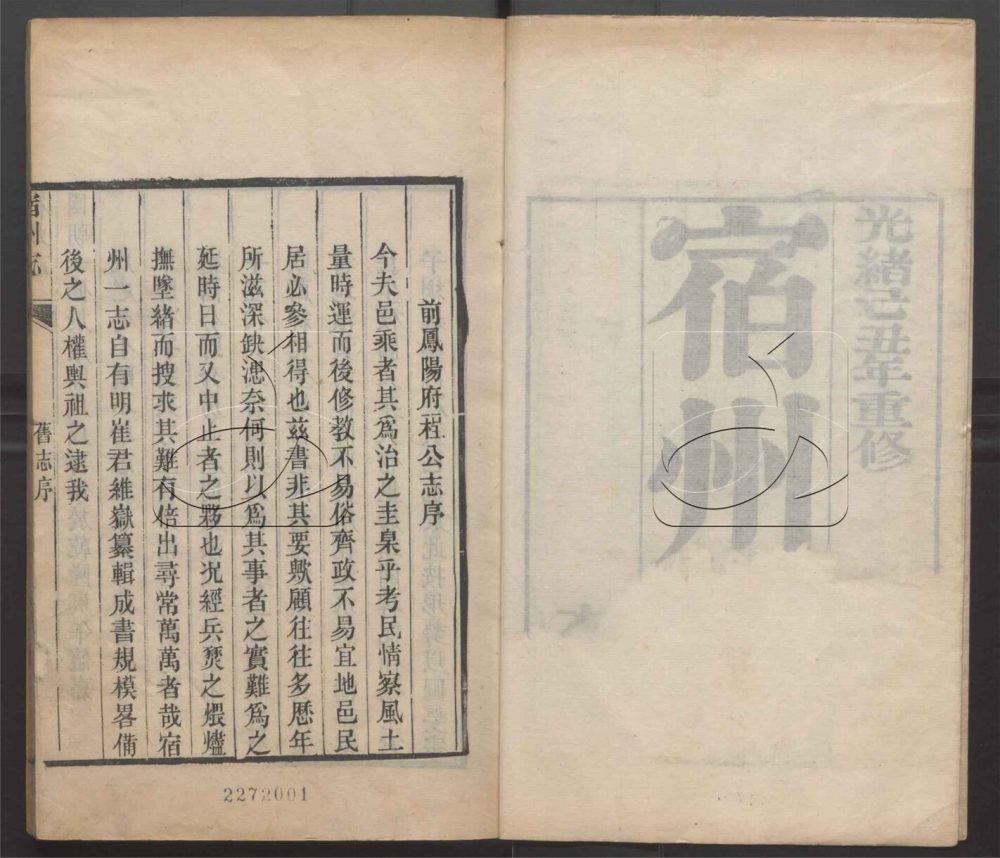 光緒己丑年重修
宿州
前鳳陽府程公志序
今夫邑乘者其爲治之圭臬乎考民情察風土
量時運而後修教不易俗齊政不易宜地邑民
居必參相得也茲書非其要歟顧往往多歷年
所滋深缺漶奈何則以爲其事者之實難爲之
延時日而又中止者之夥也況經兵燹之煨燼
撫墜緒而搜求其難有倍出尋常萬萬者哉宿
州一志自有明崔君維嶽纂輯成書規模畧備
後之人權輿祖之逮我
宿州志
舊志序
2272001